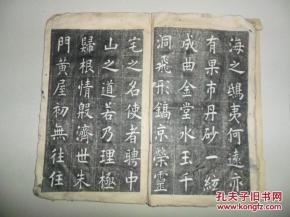 海之鴟夷何遠㞢
有果市丹砂一紡
成曲金堂水玉千
洞飛形鎬京榮靈
宅之名使者聘中
山之道若乃理極
歸根情殷濟世朱
門黃屋初無往任